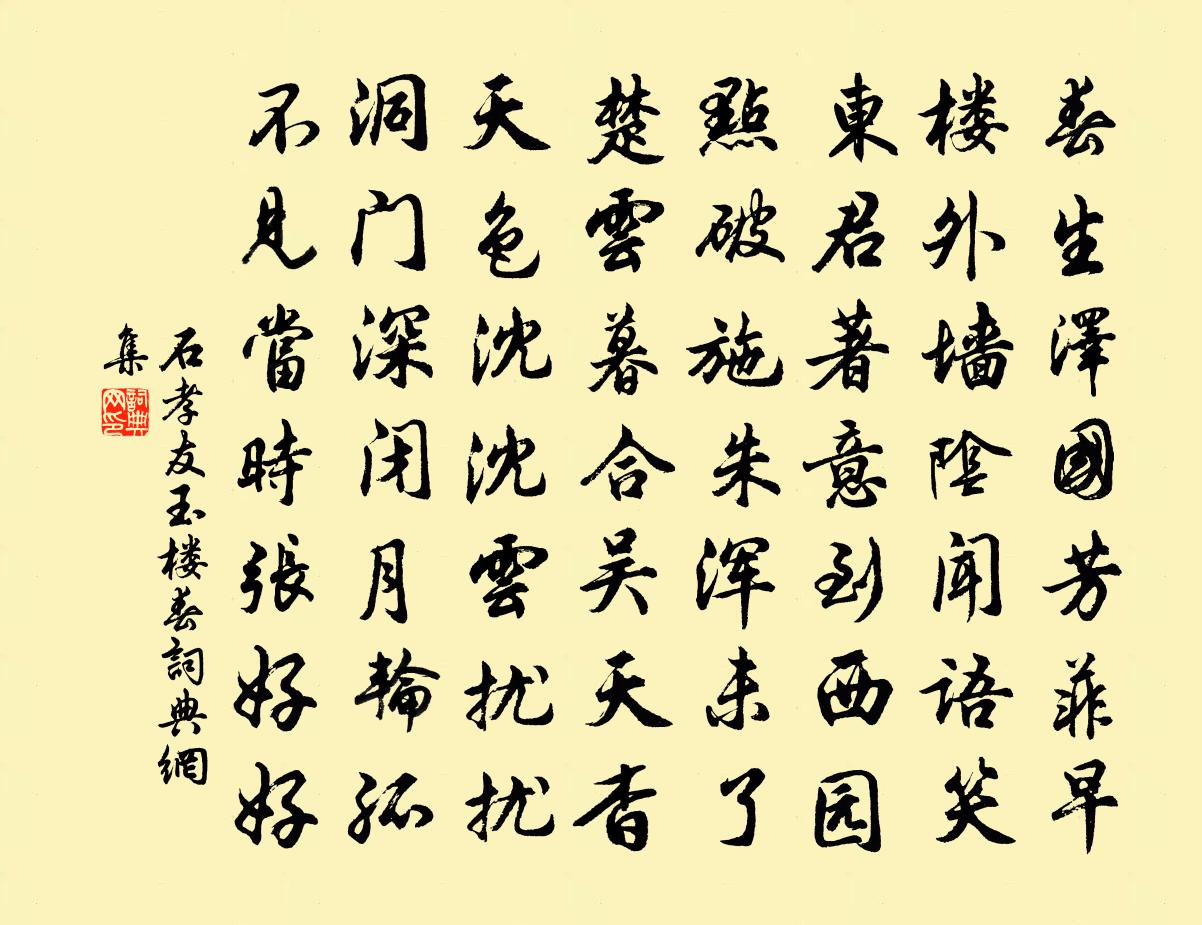 春生澤國芳菲早
楼外墙陰闻语笑
東君著意到西园
點破施朱浑未了
楚雲暮合吴天杳
天色沈沈雲扰扰
洞门深闭月輪孤
不見當時張好好
石孝友玉楼春詞典網
集
詞典
网印